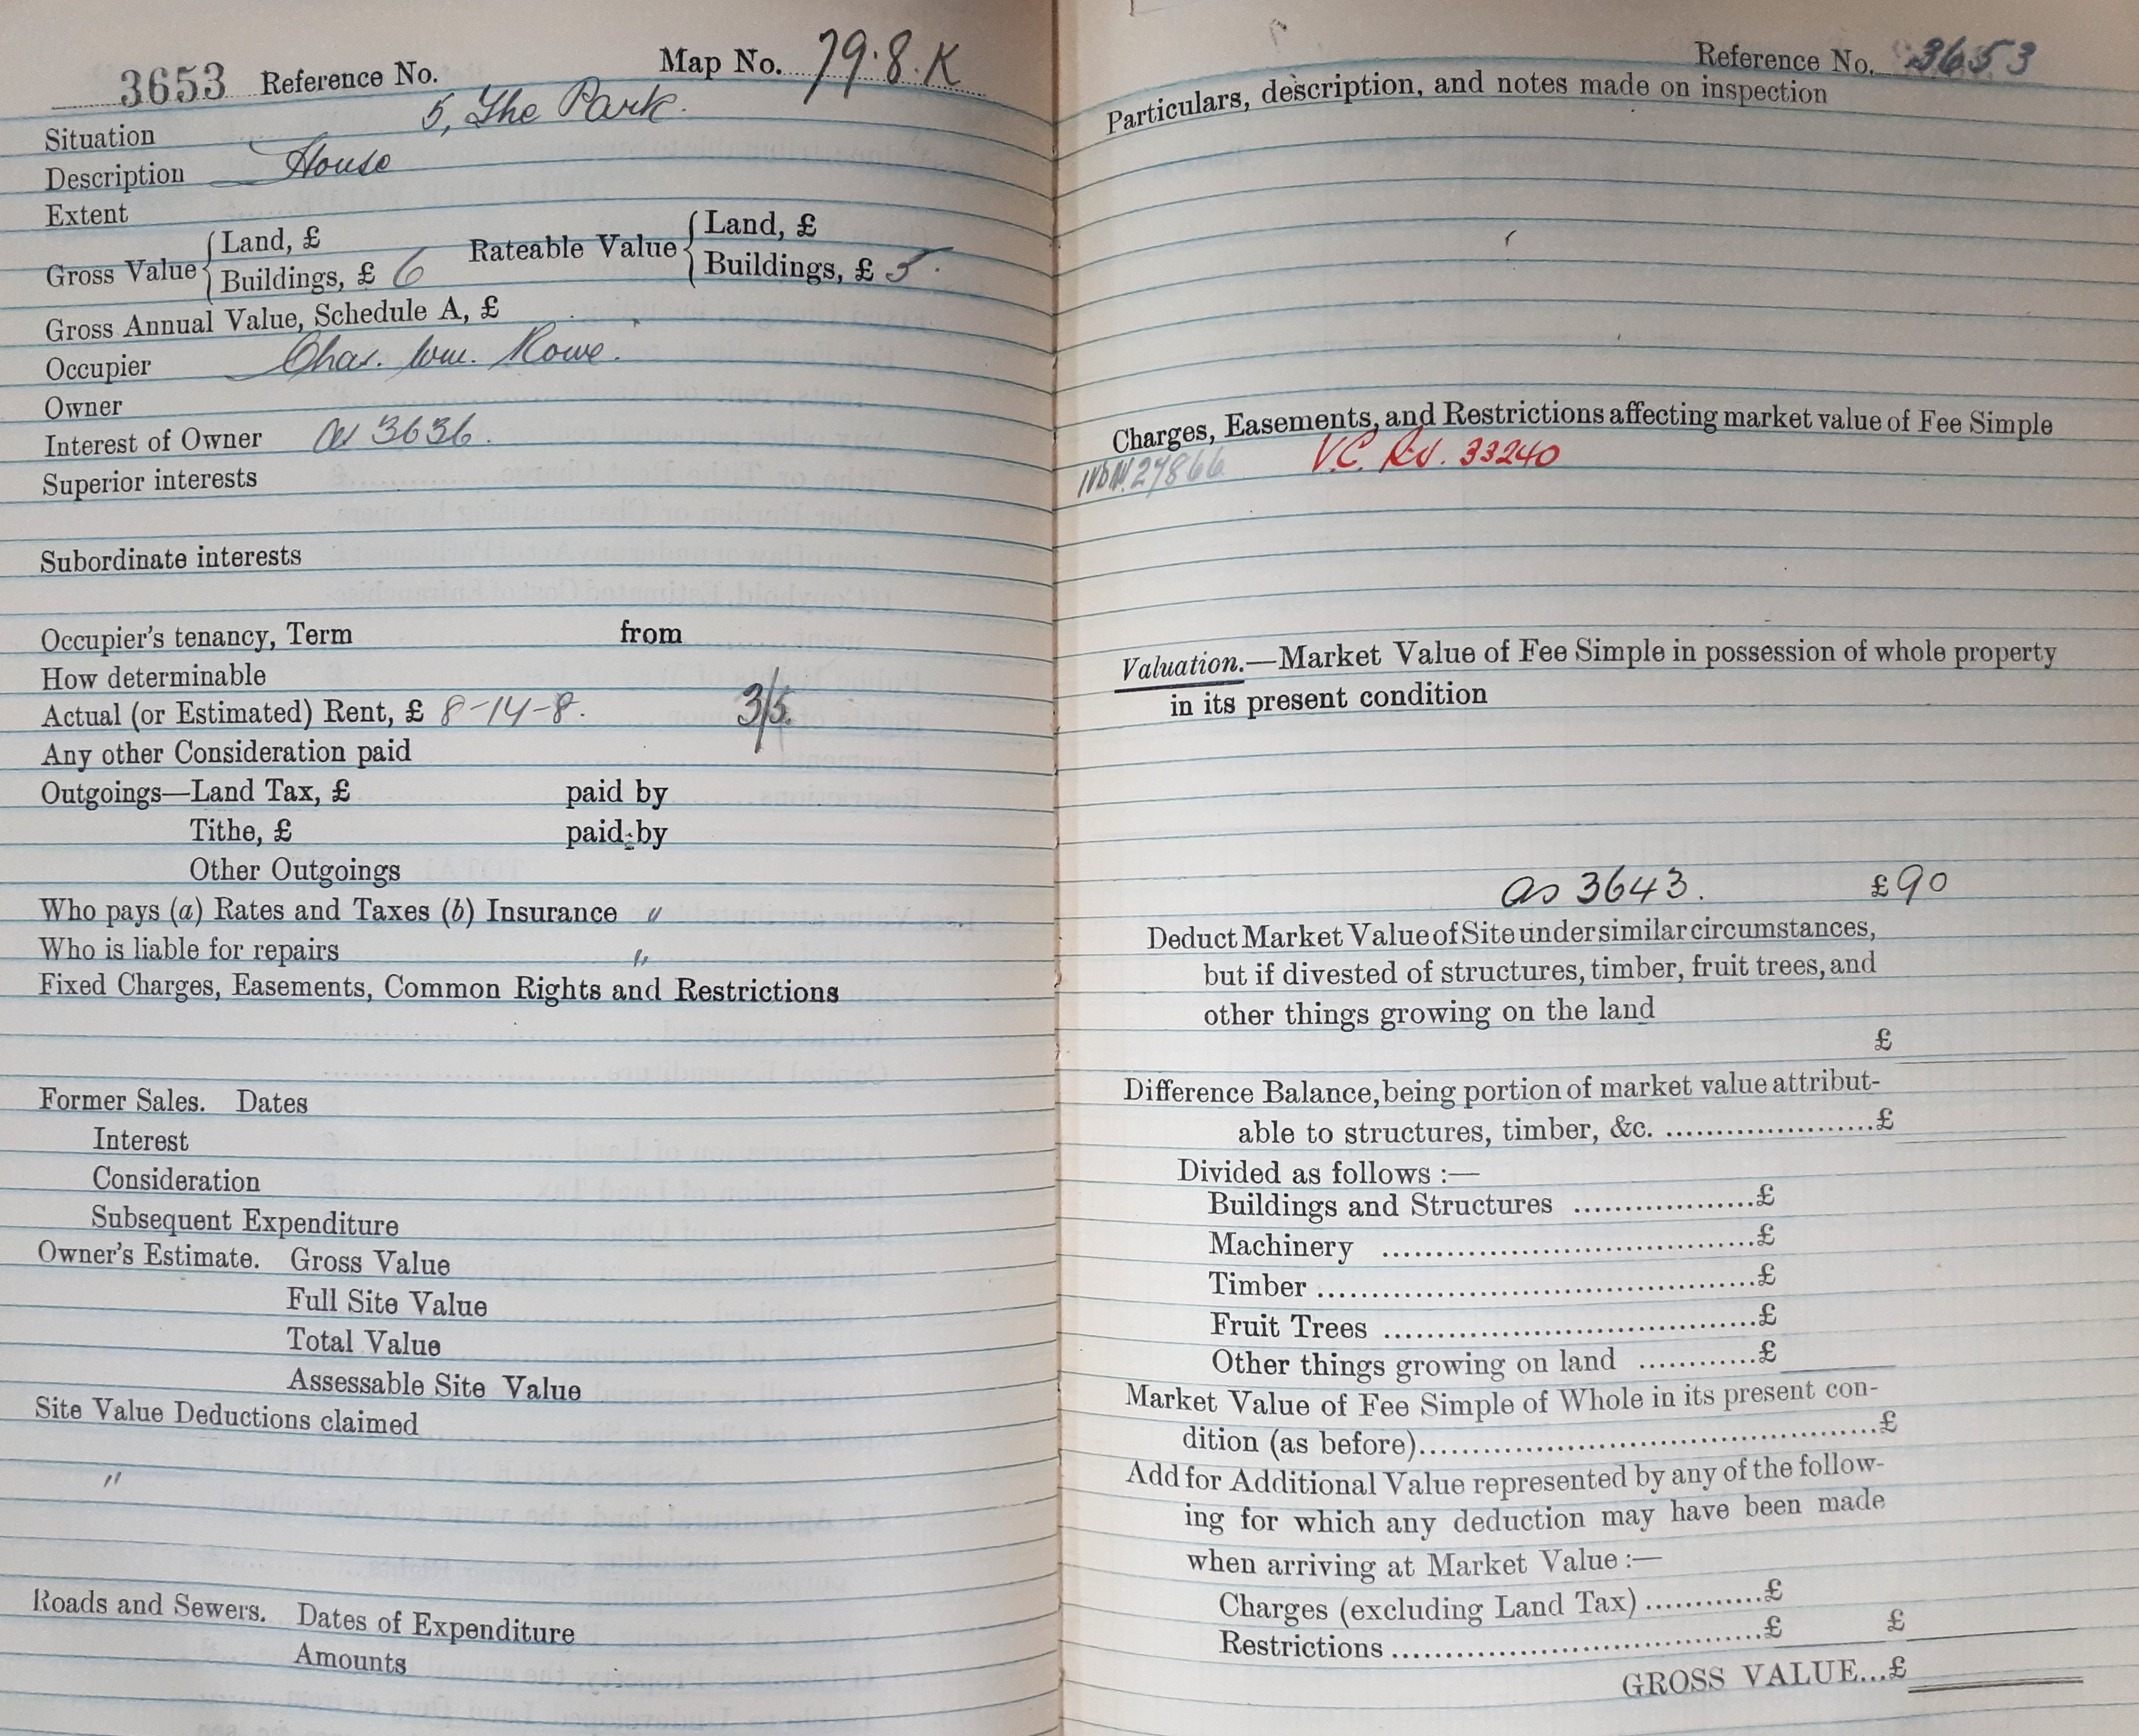 3653 Reference No. Map No. 79.8.K
Situation 5, The Park.
Description House
Extent
Gross Value { Land, £ Rateable Value { Land, £
Buildings, £ 6 Buildings, £ 5.
Gross Annual Value, Schedule A, £
Occupier Chas. Wm. Rowe.
Owner
Interest of Owner as 3636.
Superior interests
Subordinate interests
Occupier's tenancy, Term from
How determinable
Actual (or Estimated) Rent, £ 8-14-8. 3/5.
Any other Consideration paid
Outgoings—Land Tax, £ paid by
Tithe, £ paid by
Other Outgoings
Who pays (a) Rates and Taxes (b) Insurance "
Who is liable for repairs "
Fixed Charges, Easements, Common Rights and Restrictions
Former Sales. Dates
Interest
Consideration
Subsequent Expenditure
Owner's Estimate. Gross Value
Full Site Value
Total Value
Assessable Site Value
Site Value Deductions claimed
"
Roads and Sewers. Dates of Expenditure
Amounts
Reference No. 3653
Particulars, description, and notes made on inspection
Charges, Easements, and Restrictions affecting market value of Fee Simple
27866 V.C. Rd. 33240
Valuation.—Market Value of Fee Simple in possession of whole property
in its present condition
as 3643. £90
Deduct Market Value of Site under similar circumstances,
but if divested of structures, timber, fruit trees, and
other things growing on the land
£
Difference Balance, being portion of market value attribut-
able to structures, timber, &c. .....................£
Divided as follows :—
Buildings and Structures ..................£
Machinery .....................................£
Timber ...........................................£
Fruit Trees .....................................£
Other things growing on land ............£
Market Value of Fee Simple of Whole in its present con-
dition (as before)..............................................£
Add for Additional Value represented by any of the follow-
ing for which any deduction may have been made
when arriving at Market Value :—
Charges (excluding Land Tax) ............£
Restrictions .....................................£ £
GROSS VALUE...£